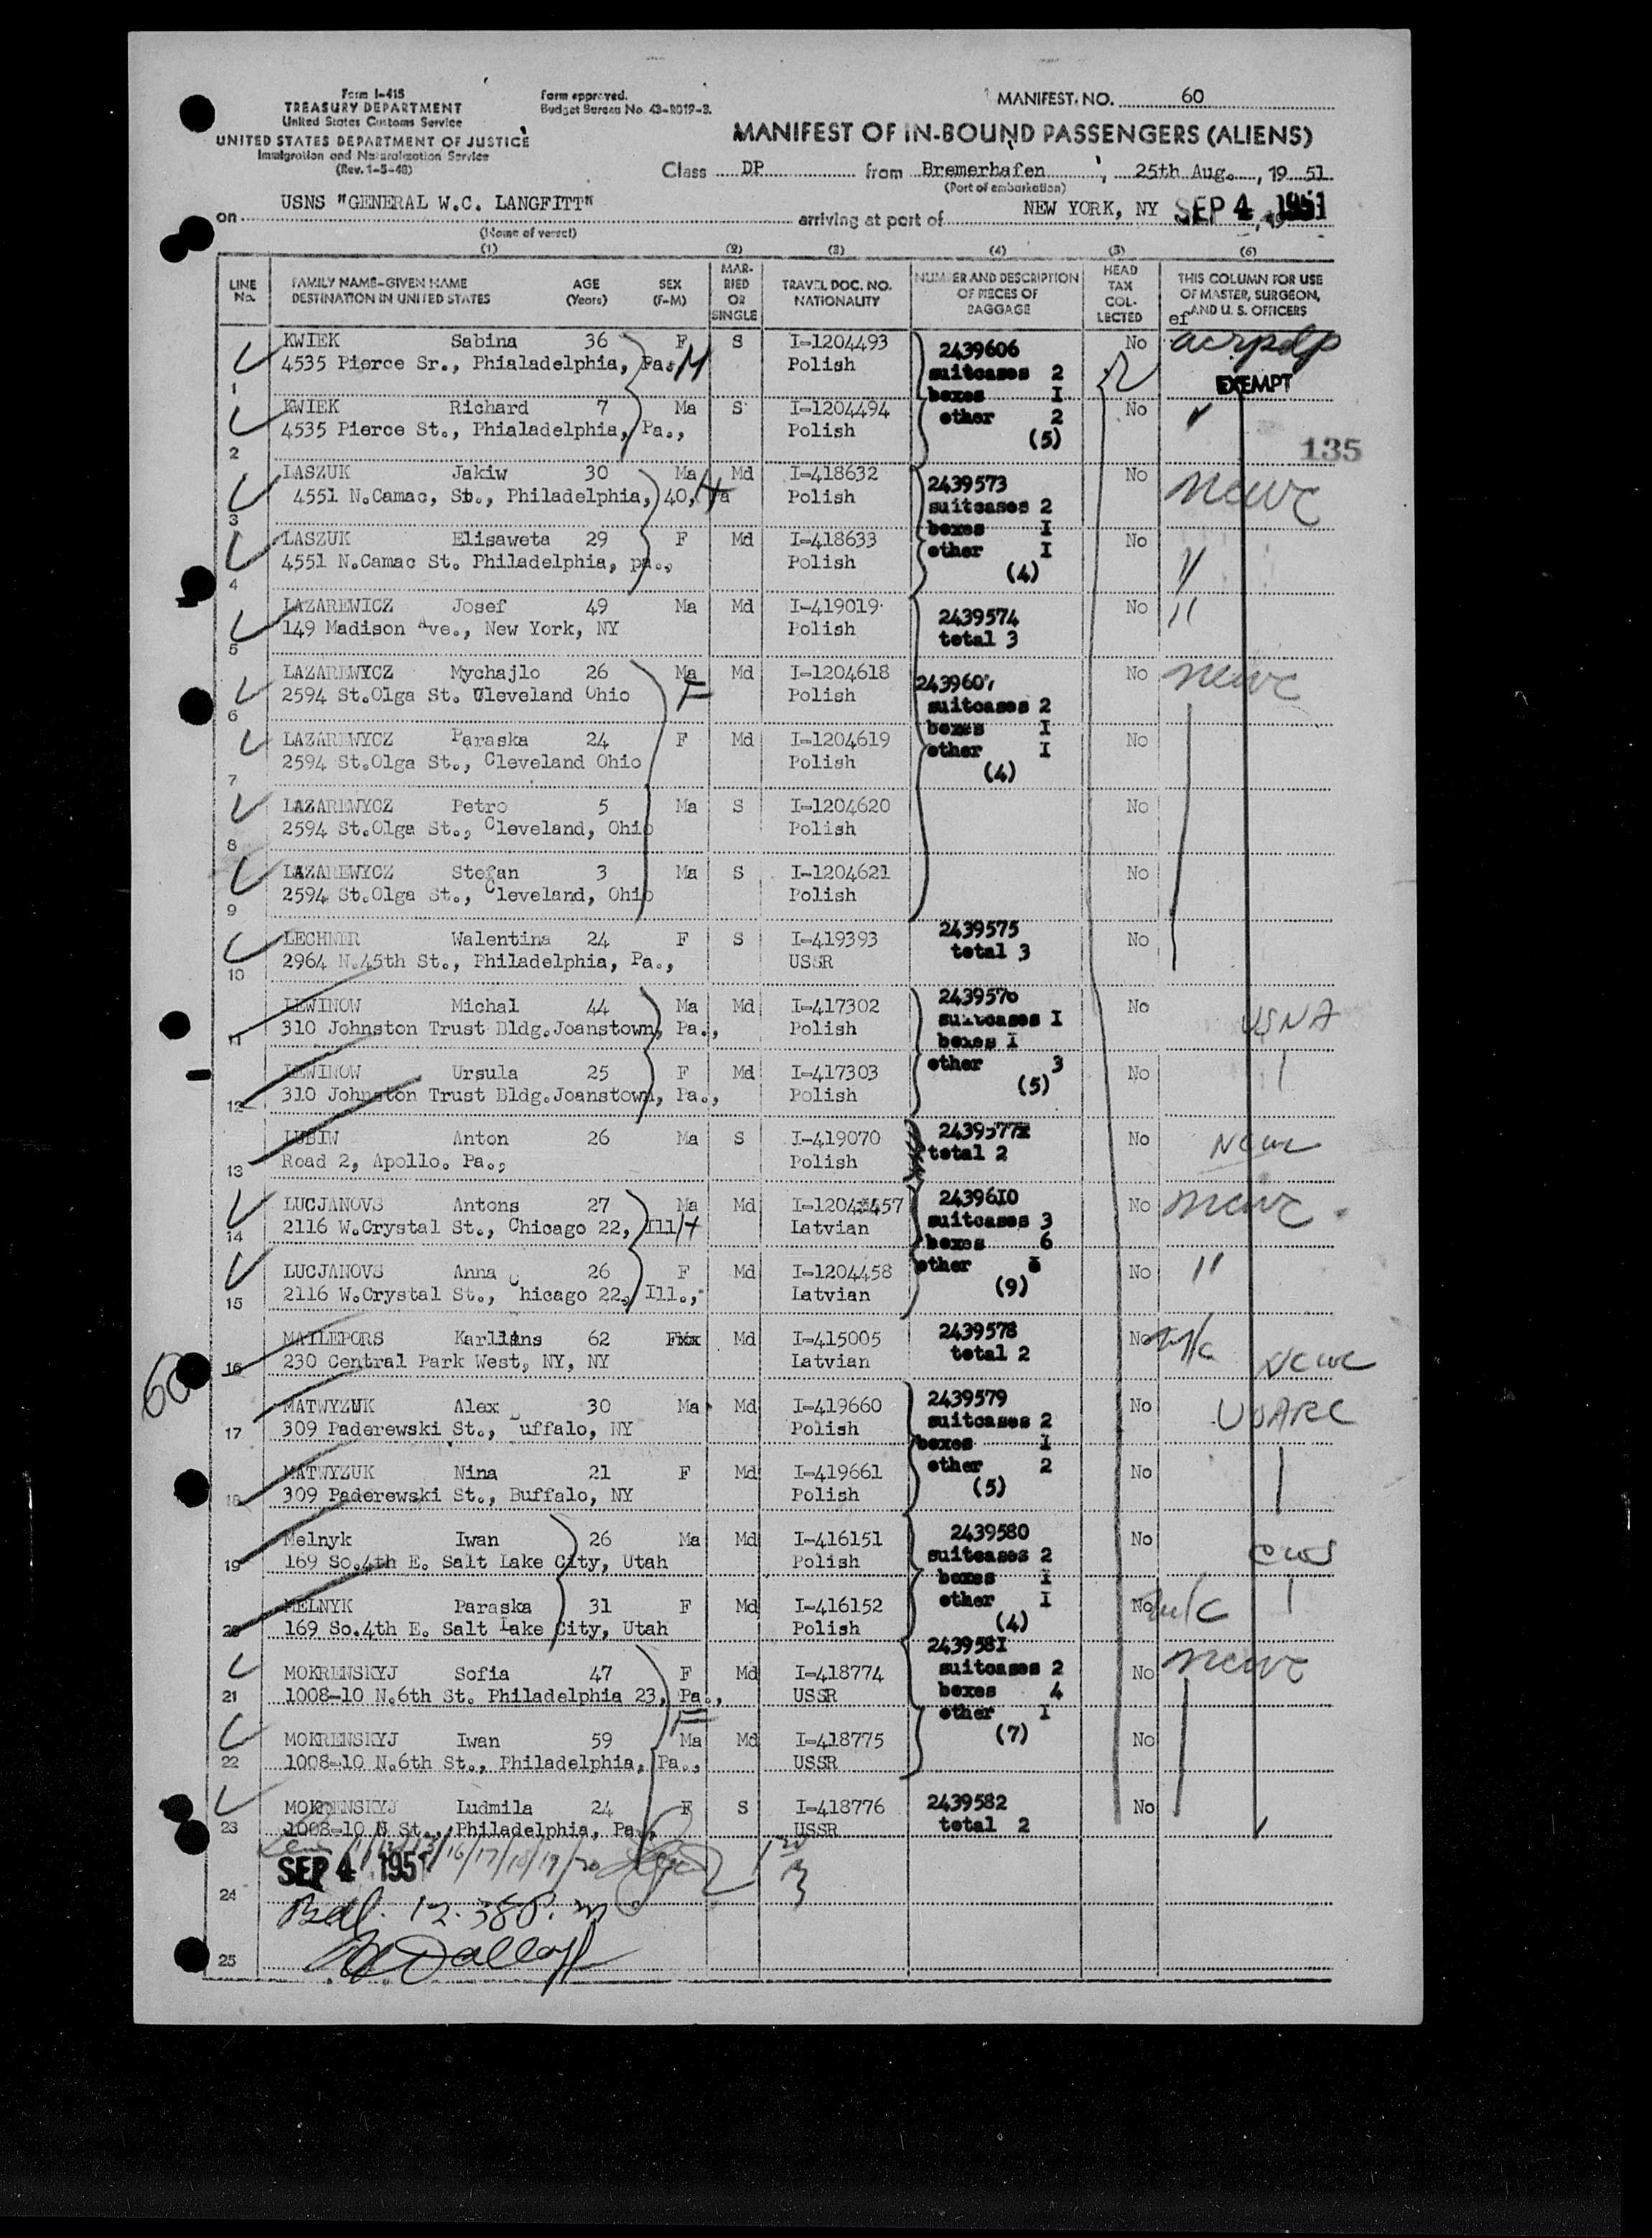 Form I-415
TREASURY DEPARTMENT
United States Customs Service
UNITED STATES DEPARTMENT OF JUSTICE
Immigration and Naturalization Service
(Rev. 1-5-48)
Form approved.
Budget Bureau No. 43-R019-3.
MANIFEST. NO. 60
MANIFEST OF IN-BOUND PASSENGERS (ALIENS)
Class DP from Bremerhafen, 25th Aug., 19 51
(Port of embarkation)
on USNS "GENERAL W.C. LANGFITT" arriving at port of NEW YORK, NY SEP 4 1951
(Name of vessel)
(1) (2) (3) (4) (5) (6)
LINE No. FAMILY NAME—GIVEN NAME DESTINATION IN UNITED STATES AGE (Years) SEX (F-M) MARRIED OR SINGLE TRAVEL DOC. NO. NATIONALITY NUMBER AND DESCRIPTION OF PIECES OF BAGGAGE HEAD TAX COLLECTED THIS COLUMN FOR USE OF MASTER, SURGEON, AND U. S. OFFICERS
ef
KWIEK Sabina 36 F S I-1204493 2439606 No
4535 Pierce Sr., Phialadelphia, Pa. M Polish suitcases 2 EXEMPT
1 boxes I
KWIEK Richard 7 Ma S I-1204494 other 2 No
4535 Pierce St., Phialadelphia, Pa., Polish (5)
2 135
LASZUK Jakiw 30 Ma Md I-418632 2439573 No ncwc
4551 N.Camac, St., Philadelphia, 40, Pa Polish suitcases 2
3 boxes I
LASZUK Elisaweta 29 F Md I-418633 other I No
4551 N.Camac St. Philadelphia, pa., Polish (4) "
4
LAZAREWICZ Josef 49 Ma Md I-419019 2439574 No "
149 Madison Ave., New York, NY Polish total 3
5
LAZAREWYCZ Mychajlo 26 Ma Md I-1204618 2439607 No ncwc
2594 St.Olga St. Cleveland Ohio F Polish suitcases 2
6 boxes I
LAZAREWYCZ Paraska 24 F Md I-1204619 other I No
2594 St.Olga St., Cleveland Ohio Polish (4)
7
LAZAREWYCZ Petro 5 Ma S I-1204620 No
2594 St.Olga St., Cleveland, Ohio Polish
8
LAZAREWYCZ Stefan 3 Ma S I-1204621 No
2594 St.Olga St., Cleveland, Ohio Polish
9
LECHNER Walentina 24 F S I-419393 2439575 No
2964 N.45th St., Philadelphia, Pa., USSR total 3
10
LEWINOW Michal 44 Ma Md I-417302 2439576 No USNA
310 Johnston Trust Bldg.Joanstown, Pa., Polish suitcases I
11 boxes I
LEWINOW Ursula 25 F Md I-417303 other 3 No
310 Johnston Trust Bldg.Joanstown, Pa., Polish (5)
12
LUBIW Anton 26 Ma S I-419070 2439577 No ncwc
Road 2, Apollo. Pa., Polish total 2
13
LUCJANOVS Antons 27 Ma Md 2439610 No ncwc
2116 W.Crystal St., Chicago 22, Ill H Latvian suitcases 3
14 boxes 6
LUCJANOVS Anna 26 F Md I-1204458 other No "
2116 W.Crystal St., Chicago 22, Ill., Latvian (9)
15
MAILEPORS Karlians 62 Fxx Md I-415005 2439578 No n/c
230 Central Park West, NY, NY Latvian total 2 NCWC
16
MATWYZUK Alex 30 Ma Md I-419660 2439579 No USARC
309 Paderewski St., Buffalo, NY Polish suitcases 2
17 boxes I
MATWYZUK Nina 21 F Md I-419661 other 2 No
309 Paderewski St., Buffalo, NY Polish (5)
18
Melnyk Iwan 26 Ma Md I-416151 2439580 No
169 So.4th E. Salt Lake City, Utah Polish suitcases 2 CWS
19 boxes I
MELNYK Paraska 31 F Md I-416152 other I No n/c
169 So.4th E. Salt Lake City, Utah Polish (4)
20 2439581
MOKRENSKYJ Sofia 47 F Md I-418774 suitcases 2 No ncwc
1008-10 N.6th St. Philadelphia 23, Pa., USSR boxes 4
21 other I
MOKRENSKYJ Iwan 59 Ma Md I-418775 (7) No
1008-10 N.6th St., Philadelphia, Pa., USSR
22
MOKRENSKYJ Ludmila 24 F S I-418776 2439582 No
1008-10 N St., Philadelphia, Pa., USSR total 2
23
11/12/13/16/17/18/19/20
SEP 4 1951
24
Bdl. 12.38 P.m
25
60